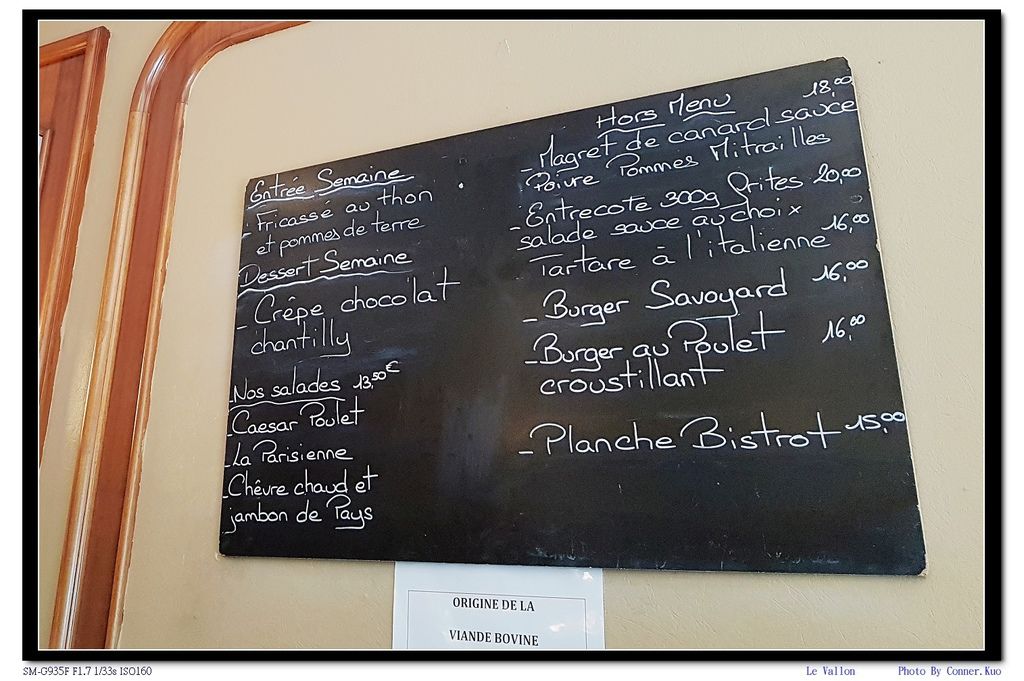 Entrée Semaine
- Fricassé au thon
et pommes de terre
Dessert Semaine
- Crêpe chocolat
chantilly
Nos salades 13,50€
- Caesar Poulet
- La Parisienne
- Chêvre chaud et
jambon de Pays
Hors Menu 18,00
- Magret de canard sauce
Poivre Pommes Mitrailles
- Entrecote 300g Frites 20,00
salade sauce au choix
- Tartare à l'italienne 16,00
- Burger Savoyard 16,00
- Burger au Poulet 16,00
croustillant
- Planche Bistrot 15,00
ORIGINE DE LA
VIANDE BOVINE
SM-G935F F1.7 1/33s ISO160
Le Vallon Photo By Conner.Kuo